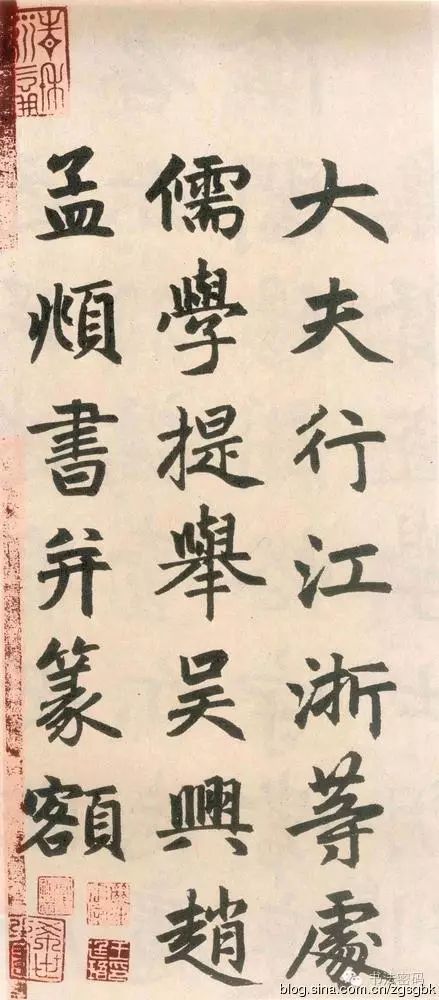 大夫行江浙等處
儒學提舉吳興趙
孟頫書并篆額
书法密码
blog.sina.com.cn/zgsgbk